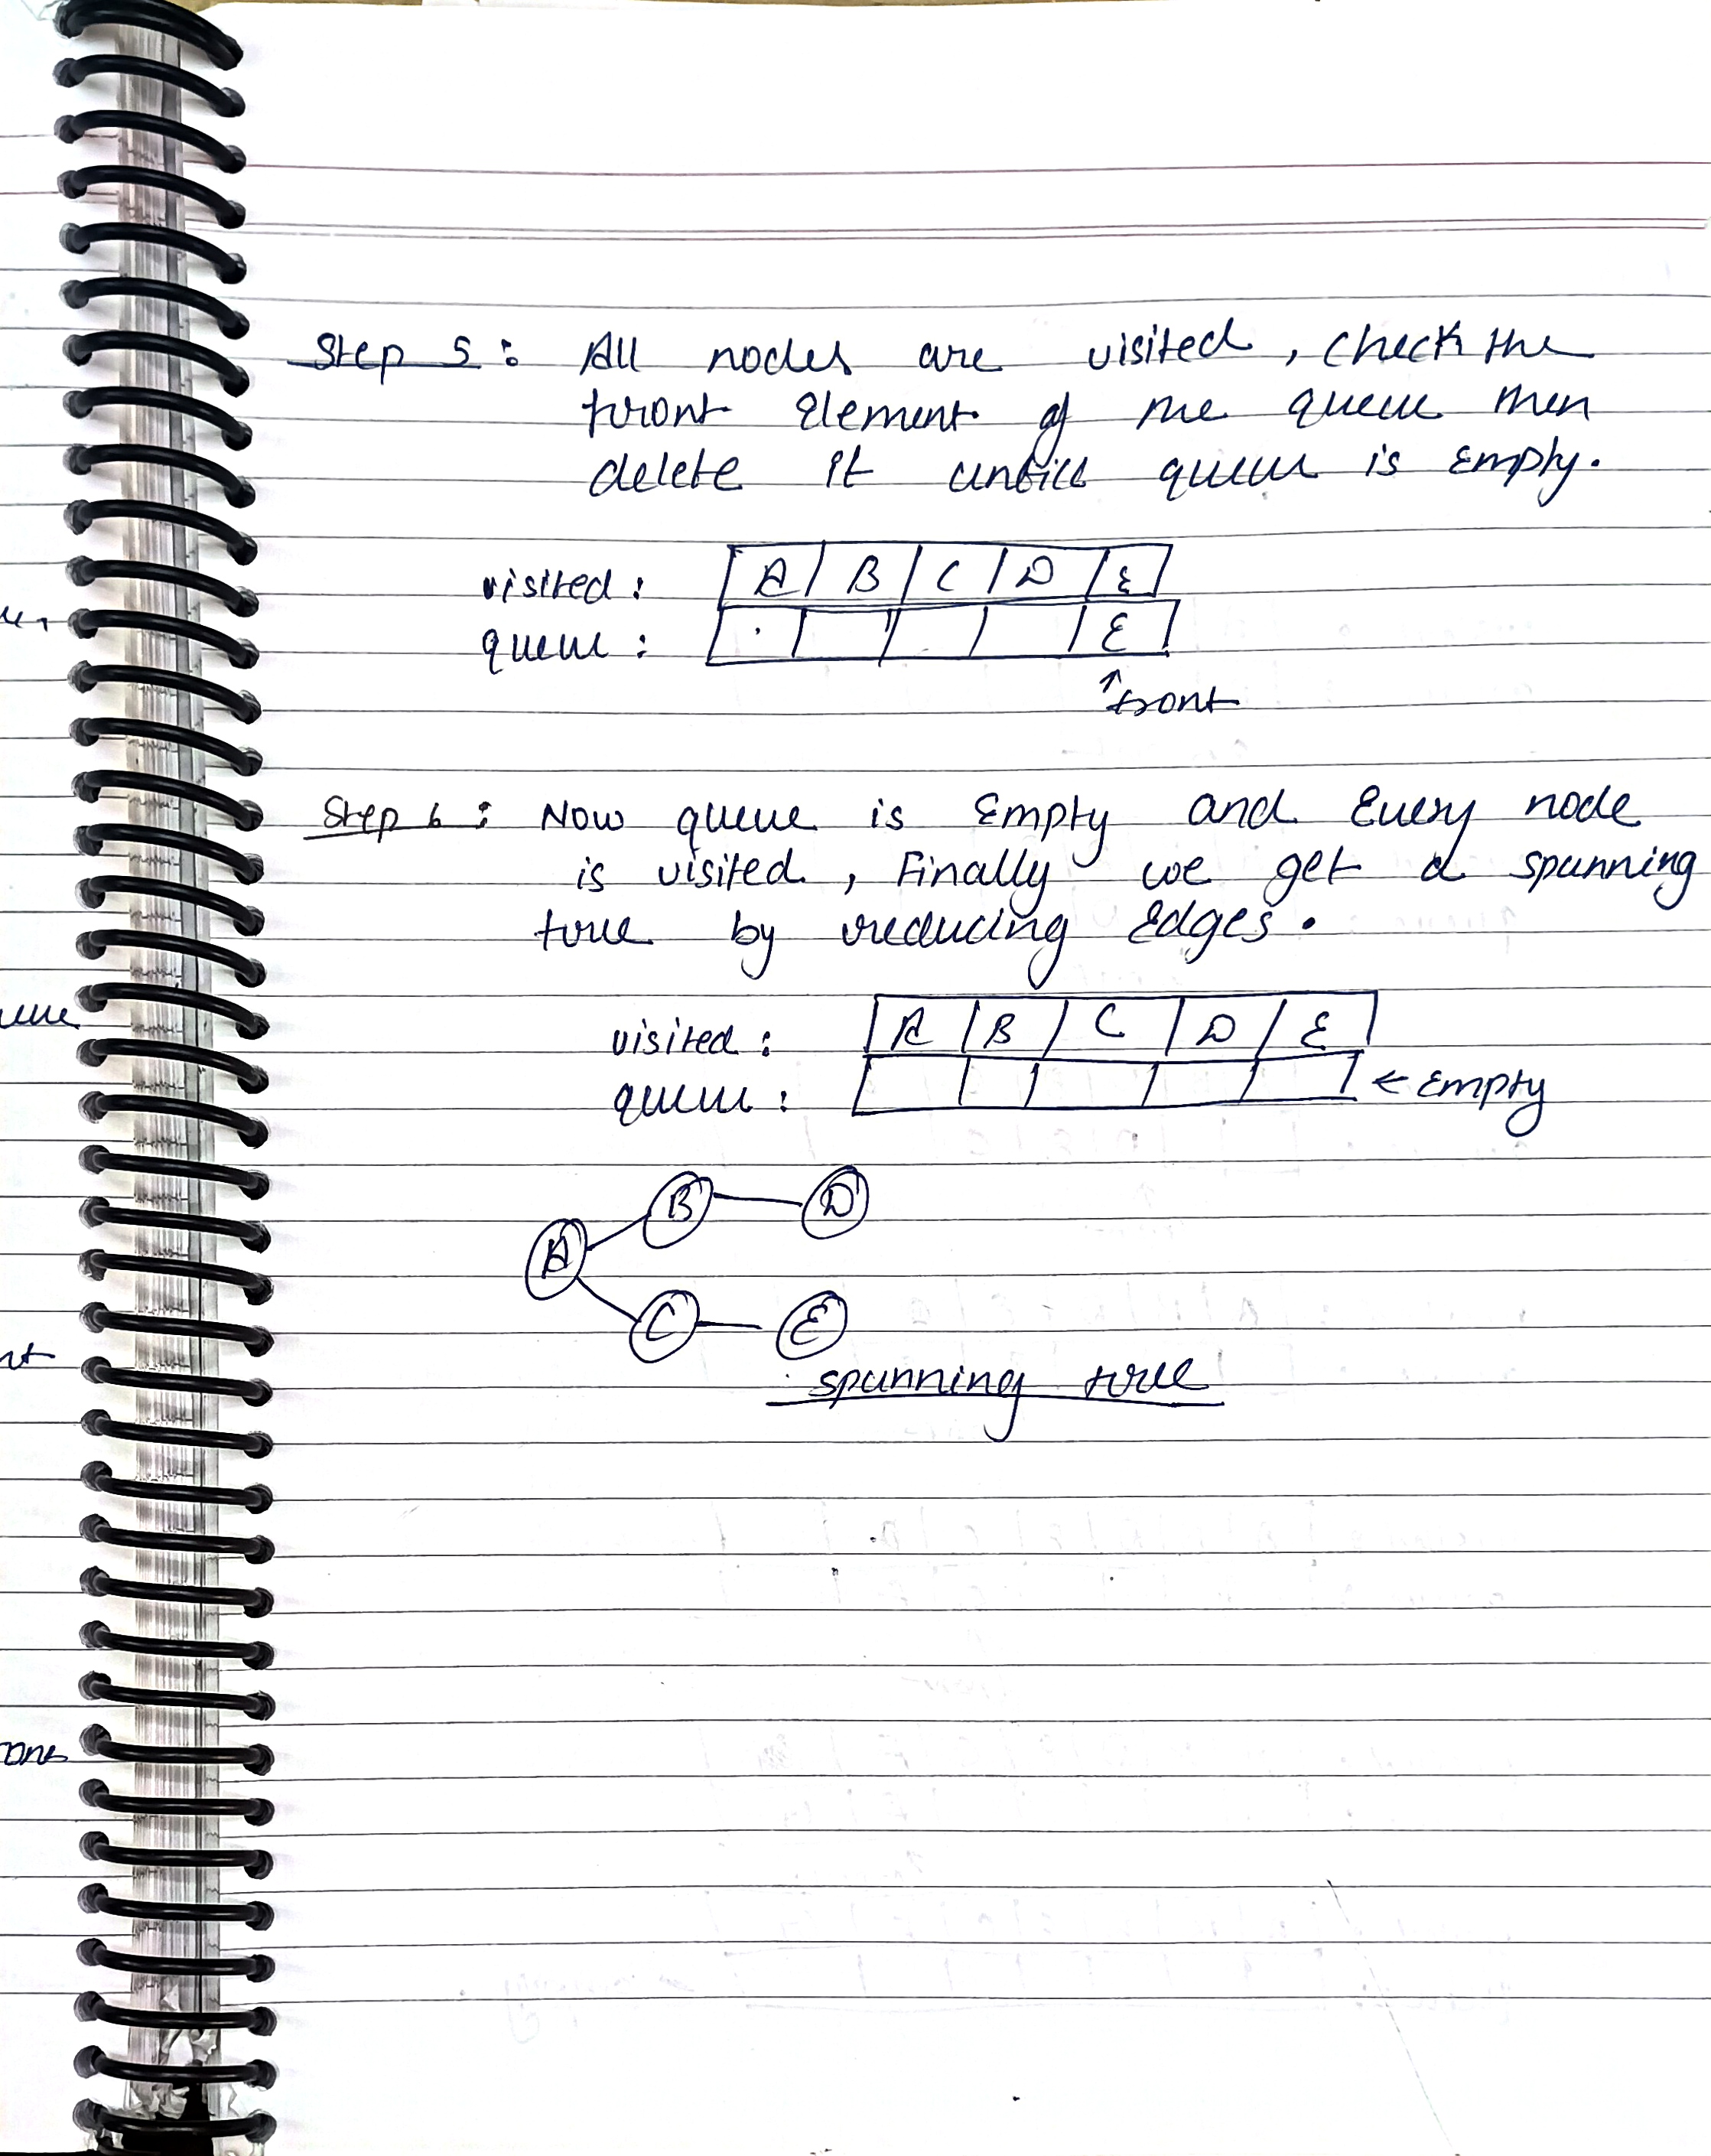 Step 5 : All nodes are visited, check the
front Element of the queue then
delete it untill queue is Empty.
visited : A B C D E
queue : E
↑ front
Step 6 : Now queue is Empty and Every node
is visited, Finally we get a spanning
tree by reducing Edges.
visited : A B C D E
queue : ← Empty
B D
A
C E
spanning tree